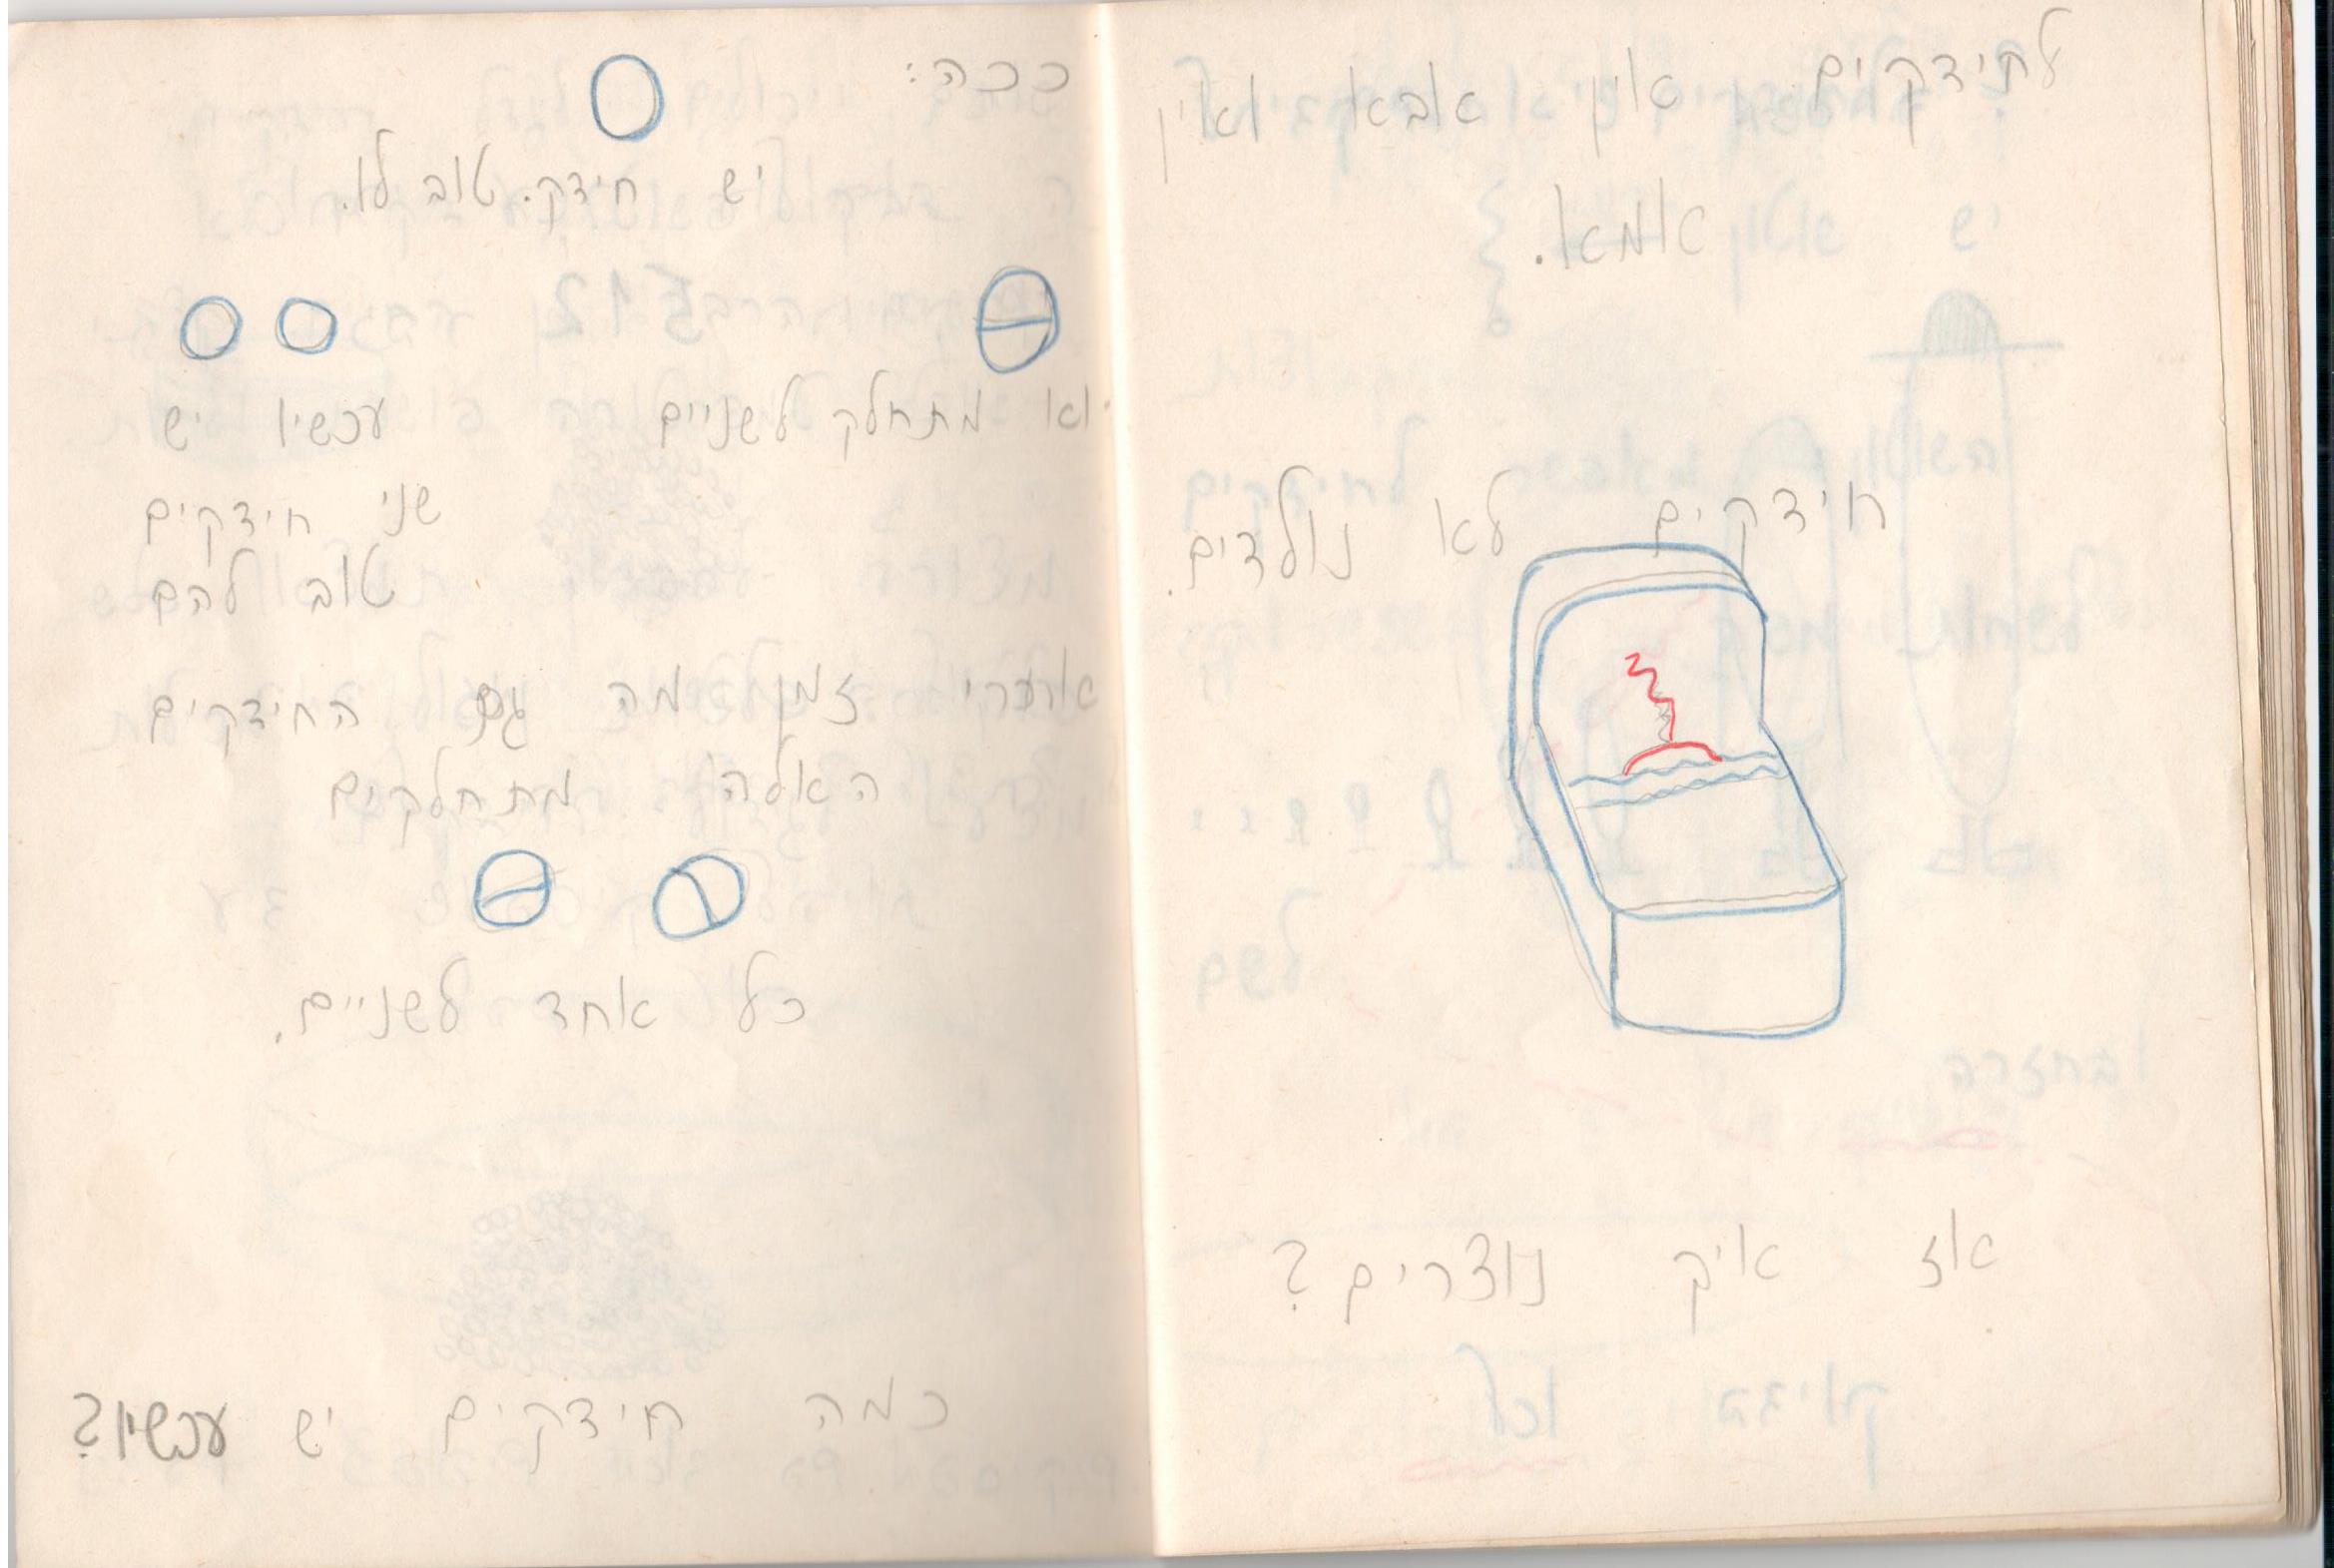 לחידקים אין אבא ואין
אמא.
חידקים לא נולדים.
אז איק נוצרים?
ככה:
יש חידק. טוב לו.
הוא מתחלק לשניים
עכשיו יש
שני חידקים
טוב להם
זמן מה גם החידקים
האלה מתחלקים
כל אחד לשניים.
כמה חידקים יש עכשיו?